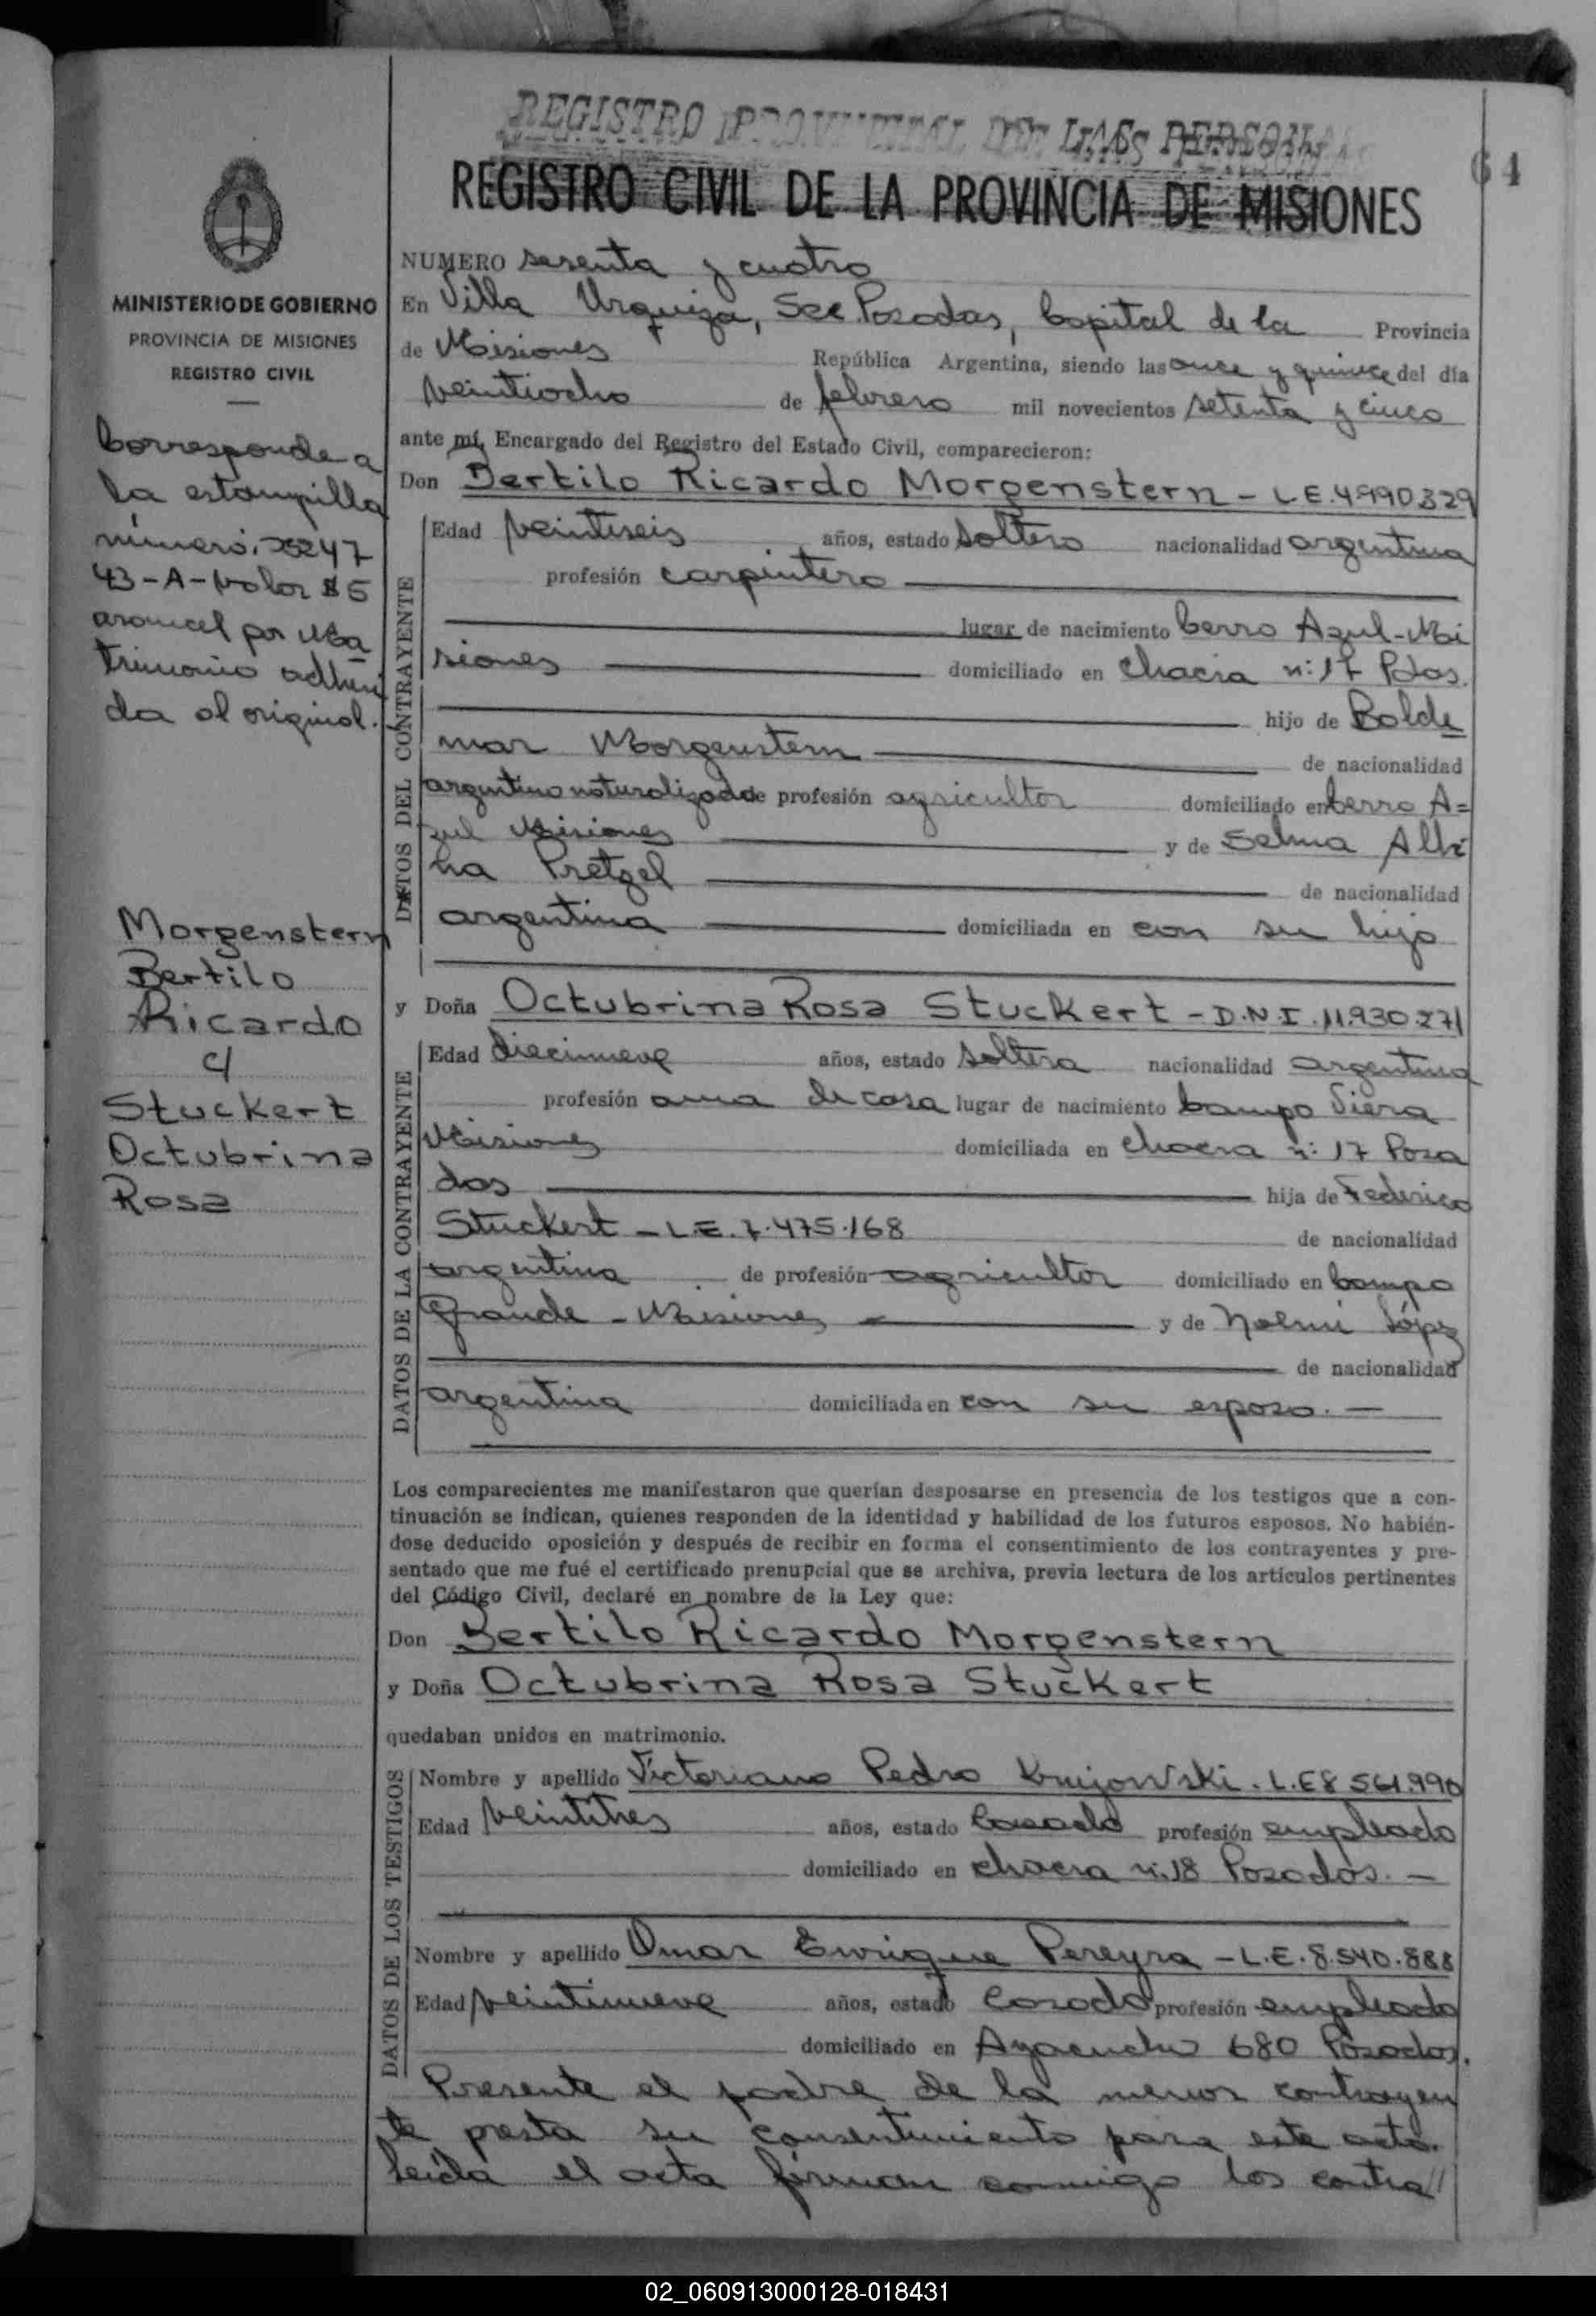 REGISTRO PROVINCIAL DE LAS PERSONAS
REGISTRO CIVIL DE LA PROVINCIA DE MISIONES
64
MINISTERIO DE GOBIERNO
PROVINCIA DE MISIONES
REGISTRO CIVIL
Corresponde a
la estampilla
número
43-A-valor $5
arancel por Ma
trimonio adheri
da al original.
Morgenstern
Bertilo
Ricardo
c/
Stuckert
Octubrina
Rosa
NUMERO sesenta y cuatro
En Villa Urquiza, Sec Posadas, Capital de la Provincia
de Misiones República Argentina, siendo las once y quince del día
veintiocho de febrero mil novecientos setenta y cinco
ante mí, Encargado del Registro del Estado Civil, comparecieron:
Don Bertilo Ricardo Morgenstern - L.E.4990329
DATOS DEL CONTRAYENTE
Edad veintiseis años, estado soltero nacionalidad argentina
profesión carpintero
lugar de nacimiento Cerro Azul-Mi
siones domiciliado en chacra nº: 17 Pdas.
hijo de Balde
mar Morgenstern de nacionalidad
argentino naturalizado de profesión agricultor domiciliado en Cerro A=
zul Misiones y de Selma Albi
na Pretzel de nacionalidad
argentina domiciliada en con su hijo
y Doña Octubrina Rosa Stuckert - D.N.I. 11.930.271
DATOS DE LA CONTRAYENTE
Edad diecinueve años, estado soltera nacionalidad argentina
profesión ama de casa lugar de nacimiento Campo Viera
Misiones domiciliada en chacra nº: 17 Posa
das hija de Federico
Stuckert - L.E. 7.475.168 de nacionalidad
argentina de profesión agricultor domiciliado en Campo
Grande - Misiones y de Noemí López
de nacionalidad
argentina domiciliada en con su esposo. -
Los comparecientes me manifestaron que querían desposarse en presencia de los testigos que a con-
tinuación se indican, quienes responden de la identidad y habilidad de los futuros esposos. No habién-
dose deducido oposición y después de recibir en forma el consentimiento de los contrayentes y pre-
sentado que me fué el certificado prenupcial que se archiva, previa lectura de los artículos pertinentes
del Código Civil, declaré en nombre de la Ley que:
Don Bertilo Ricardo Morgenstern
y Doña Octubrina Rosa Stuckert
quedaban unidos en matrimonio.
DATOS DE LOS TESTIGOS
Nombre y apellido Victoriano Pedro L.E 8 561.990
Edad veintitres años, estado Casado profesión empleado
domiciliado en chacra nº.18 Posadas. -
Nombre y apellido Omar Enrique Pereyra - L.E. 8.540.888
Edad veintinueve años, estado Casado profesión empleado
domiciliado en Ayacucho 680 Posadas.
Presente el padre de la menor contrayen
te presta su consentimiento para este acto.
leída el acta firman conmigo los contra//
02_060913000128-018431